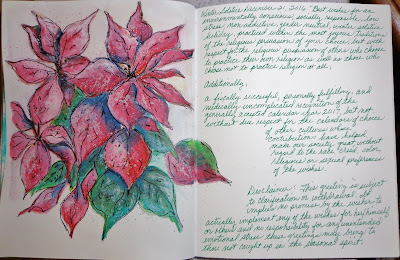 Winter Solstice December 21, 2016 "Best wishes for an
environmentally conscious, socially responsible, low
stress, non addictive, gender neutral, winter solstice
holiday, practiced within the most joyous traditions
of the religious persuasion of your choice, but with
respect for the religious persuasion of others who choose
to practice their own religion as well as those who
choose not to practice religion at all,
Additionally,
a fiscally successful, personally fulfilling, and
medically uncomplicated recognition of the
generally accepted calendar year 2017, but not
without due respect for the calendars of choice
of other cultures whose
contributions have helped
make our society great without
regard to the race, creed, color,
religious or sexual preferences
of the wishes.
Disclaimer: This greeting is subject
to clarification or withdrawal. It
implies no promise by the wisher to
actually implement any of the wishes for her/himself
or others and no responsibility for any unintended
emotional stress these greetings may bring to
those not caught up in the seasonal spirit.